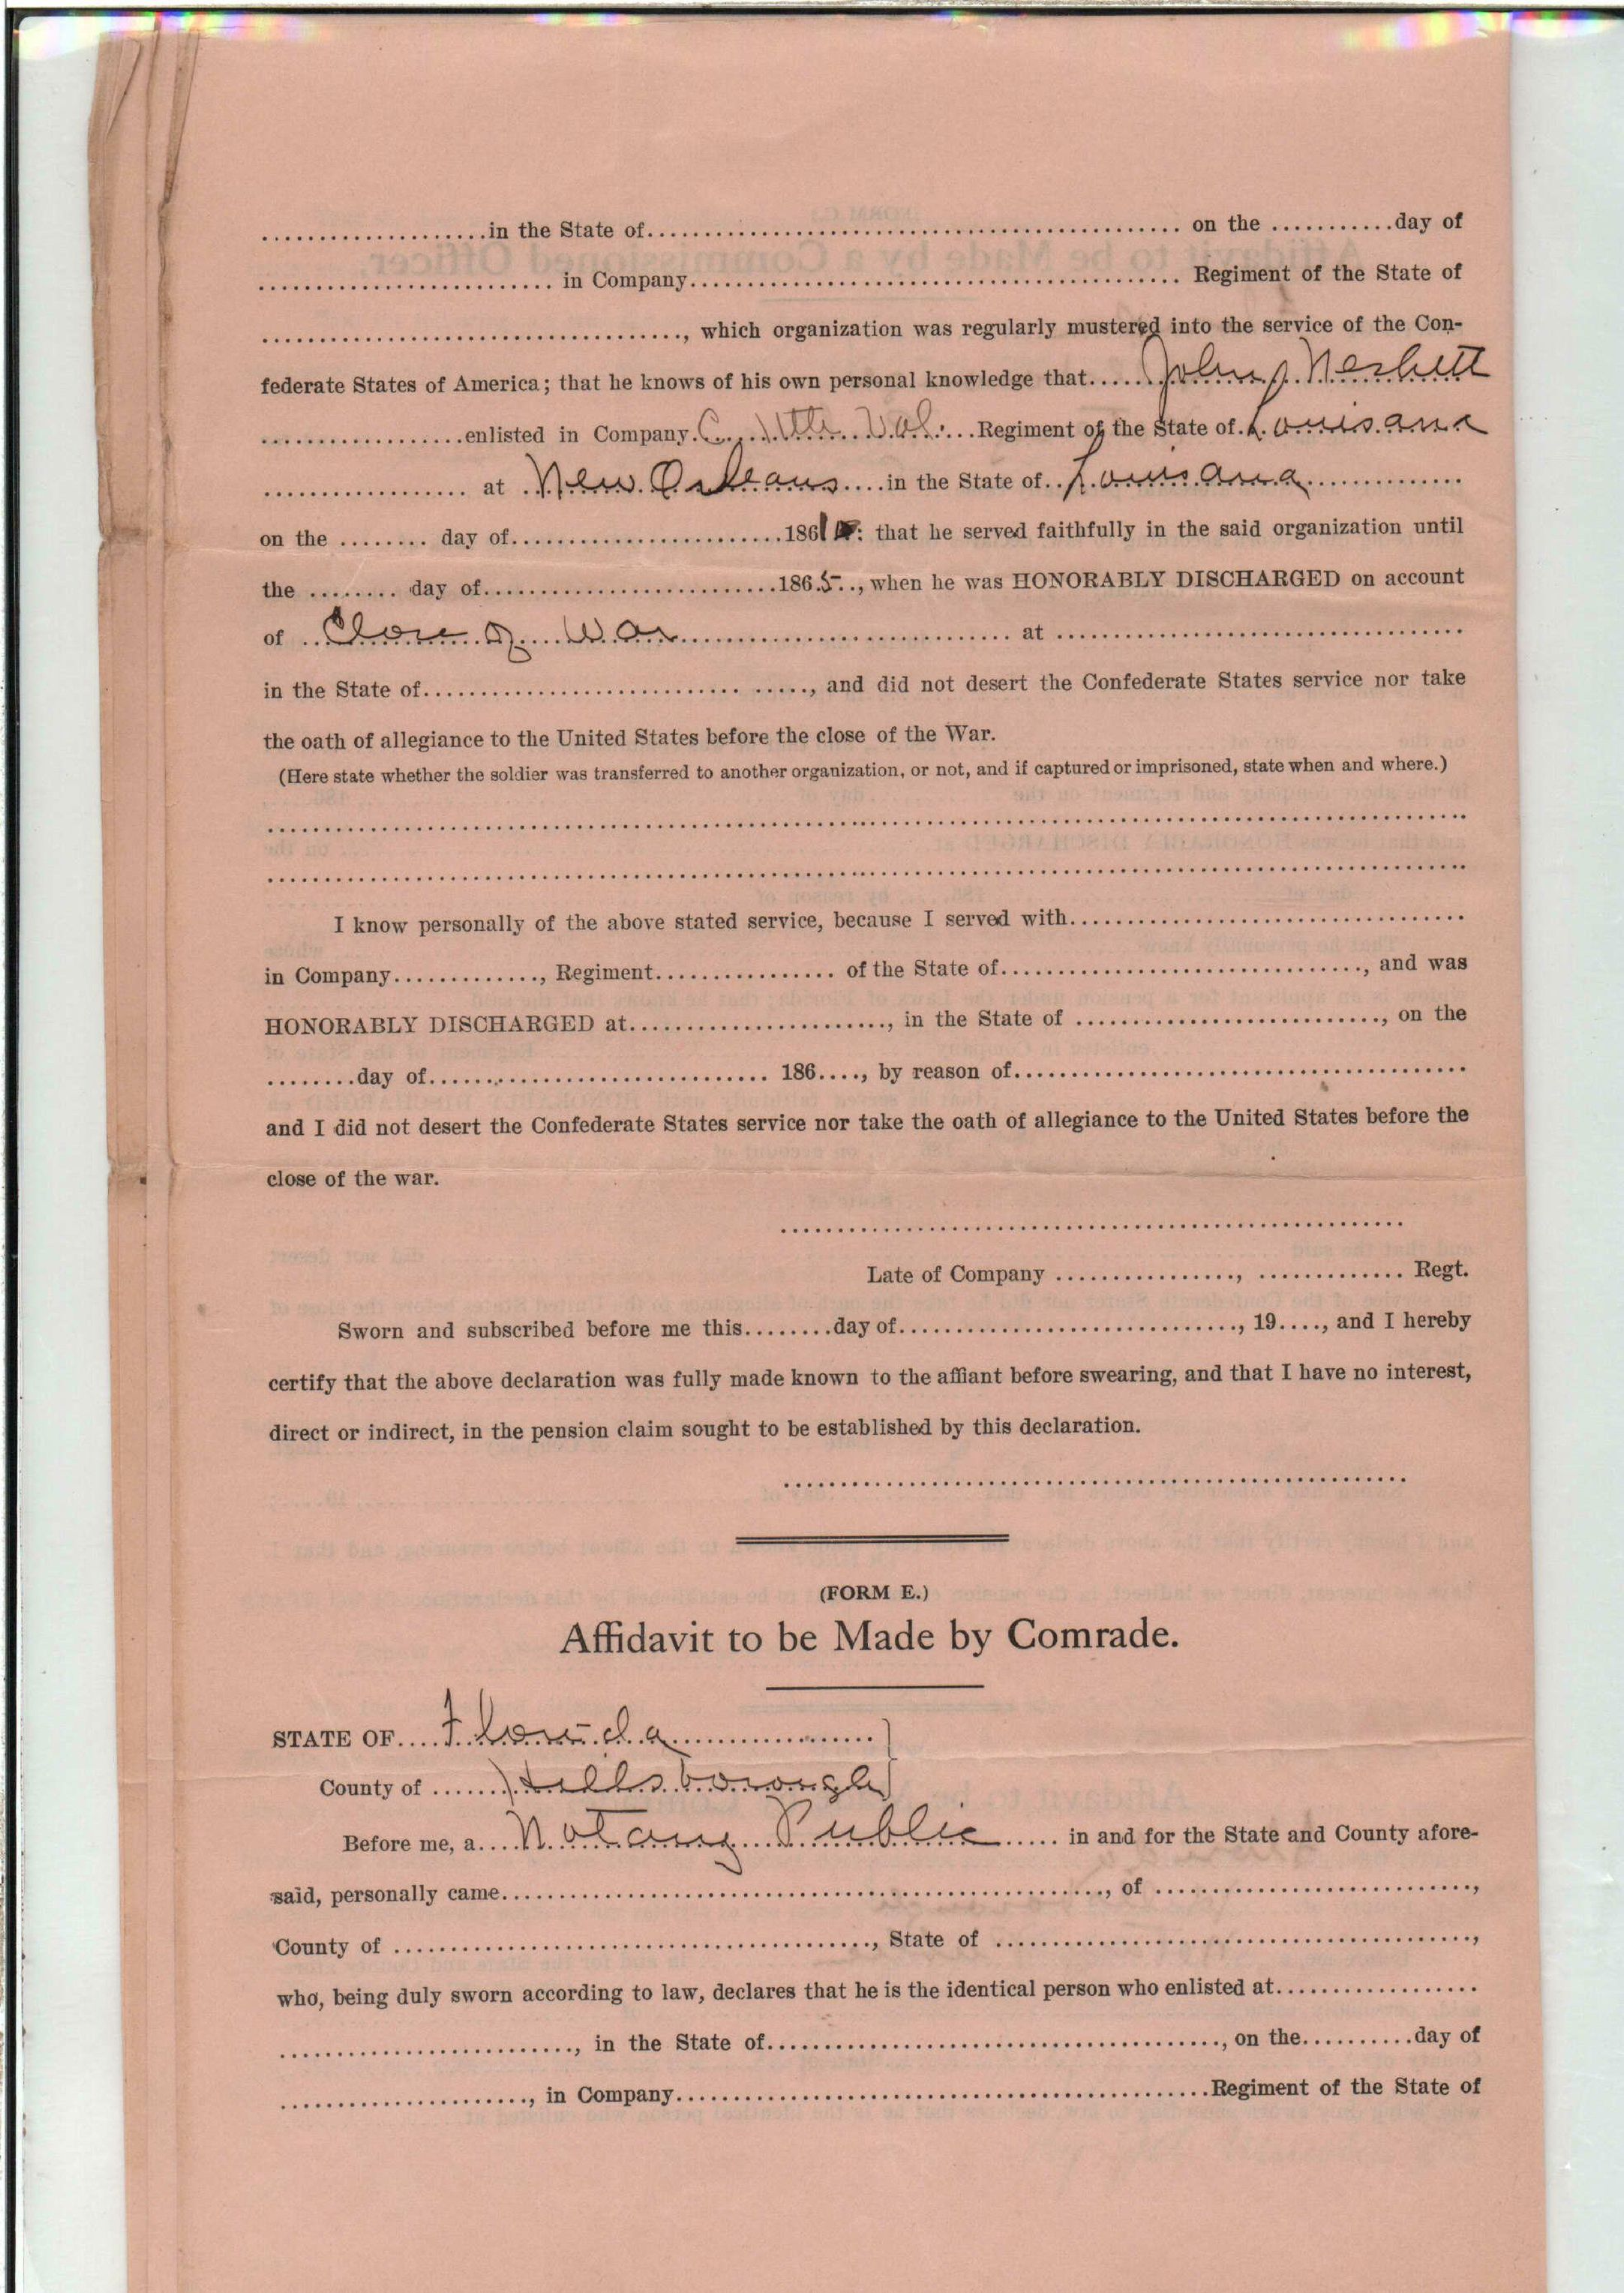 ....................in the State of................................................ on the ...........day of
.......................... in Company............................................ Regiment of the State of
......................................, which organization was regularly mustered into the service of the Con-
federate States of America; that he knows of his own personal knowledge that..... John J. Nesbitt
..................enlisted in Company. C. 11th Vol. ...Regiment of the State of. Louisana
.................. at New Orleans ....in the State of.. Louisana ..............
on the ........ day of........................1861 : that he served faithfully in the said organization until
the ........ day of..........................1865.., when he was HONORABLY DISCHARGED on account
of .. Close of War .............................. at ....................................
in the State of............................ ....., and did not desert the Confederate States service nor take
the oath of allegiance to the United States before the close of the War.
(Here state whether the soldier was transferred to another organization, or not, and if captured or imprisoned, state when and where.)
I know personally of the above stated service, because I served with...................................
in Company............., Regiment................ of the State of................................, and was
HONORABLY DISCHARGED at......................., in the State of ..........................., on the
........day of.............................. 186...., by reason of........................................
and I did not desert the Confederate States service nor take the oath of allegiance to the United States before the
close of the war.
Late of Company ................, ............. Regt.
Sworn and subscribed before me this........day of.............................., 19...., and I hereby
certify that the above declaration was fully made known to the affiant before swearing, and that I have no interest,
direct or indirect, in the pension claim sought to be established by this declaration.
(FORM E.)
Affidavit to be Made by Comrade.
STATE OF.... Florida ..................}
County of ...... Hillsborough
Before me, a.... Notary Public ...... in and for the State and County afore-
said, personally came......................................................, of ............................,
County of .........................................., State of ..........................................,
who, being duly sworn according to law, declares that he is the identical person who enlisted at..................
.........................., in the State of........................................, on the..........day of
......................, in Company...............................................Regiment of the State of